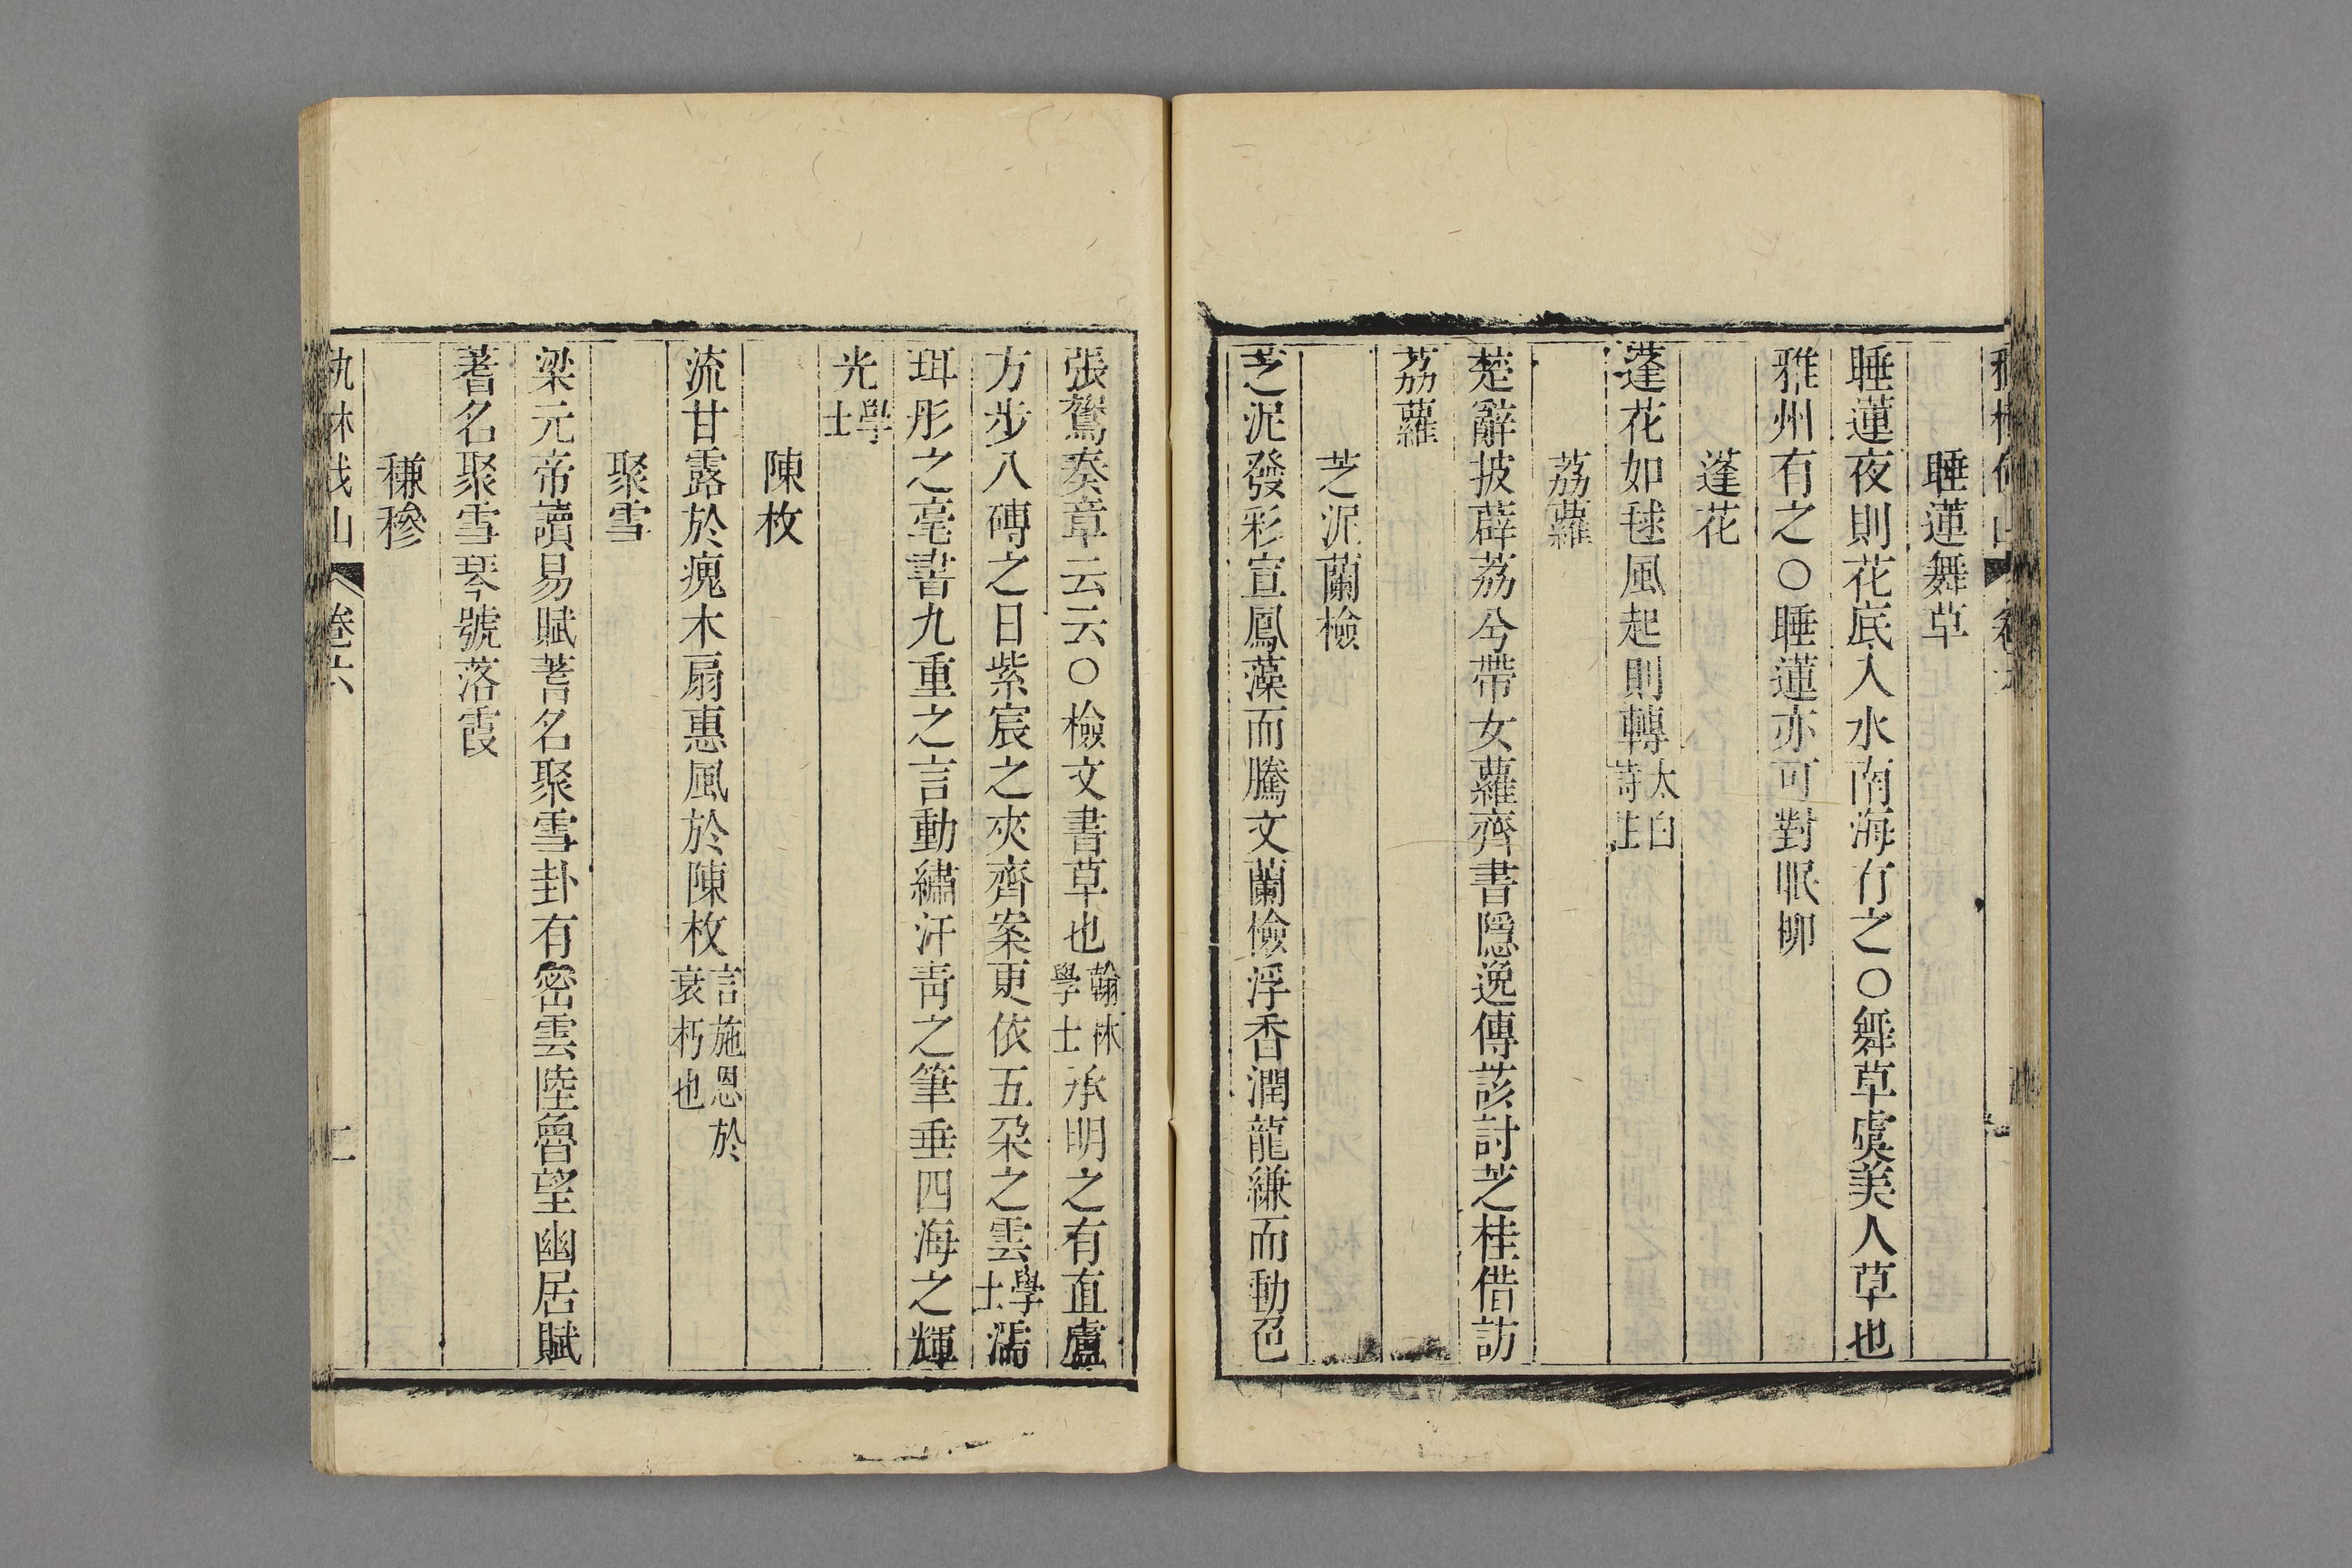 睡蓮舞草
睡蓮夜則花底入水南海有之○舞草虞美人草也
雅州有之○睡蓮亦可對眠柳
蓬花
蓬花如毬風起則轉太白詩註
荔蘿
楚辭披薜荔兮帶女蘿齊書隱逸傳該討芝桂借訪
荔蘿
芝泥蘭檢
芝泥發彩宣鳳藻而騰文蘭儉浮香潤龍縑而動色
張鴛奏章云云○檢文書草也翰林學士承明之有直廬
方步八磚之日紫宸之夾齊案更依五朶之雲學士濡
珥彤之毫書九重之言動繡汗靑之筆垂四海之輝
光學士
陳枚
流甘露於瘣木扇惠風於陳枚言施恩於衰朽也
聚雪
梁元帝讀易賦蓍名聚雪卦有密雲陸魯望幽居賦
蓍名聚雪琴號落霞
穮穇
執林伐山 卷六 二